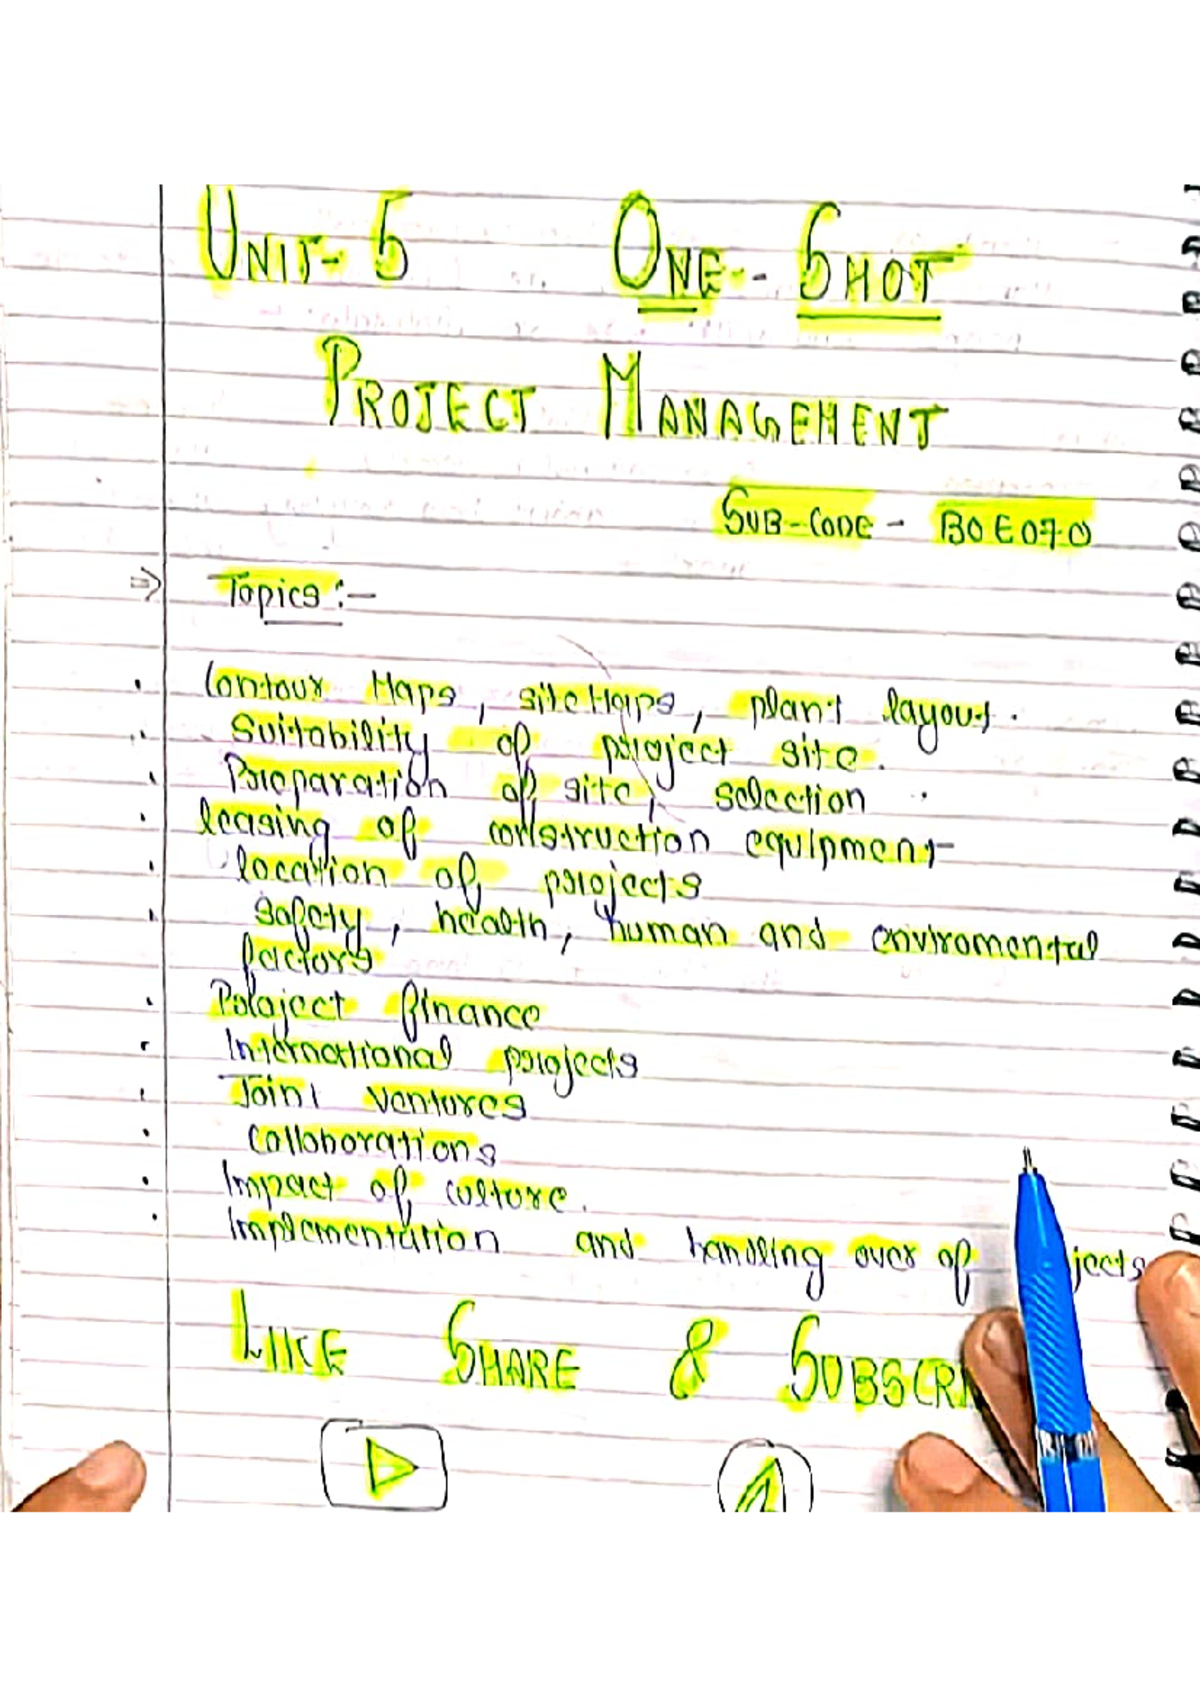 UNIT-5 ONE-SHOT
PROJECT MANAGEMENT
SUB-CODE - BOE070
⇒ Topics :-
• Contour Maps, siteMaps, plant layout.
• Suitability of project site.
• Preparation of site, selection.
• leasing of construction equipment
• location of projects
• safety, health, human and enviromental
factors
• Project finance
• International projects
• Joint ventures
• Collaborations
• Impact of culture.
• Implementation and handling over of jects
LIKE SHARE & SUBSCRI